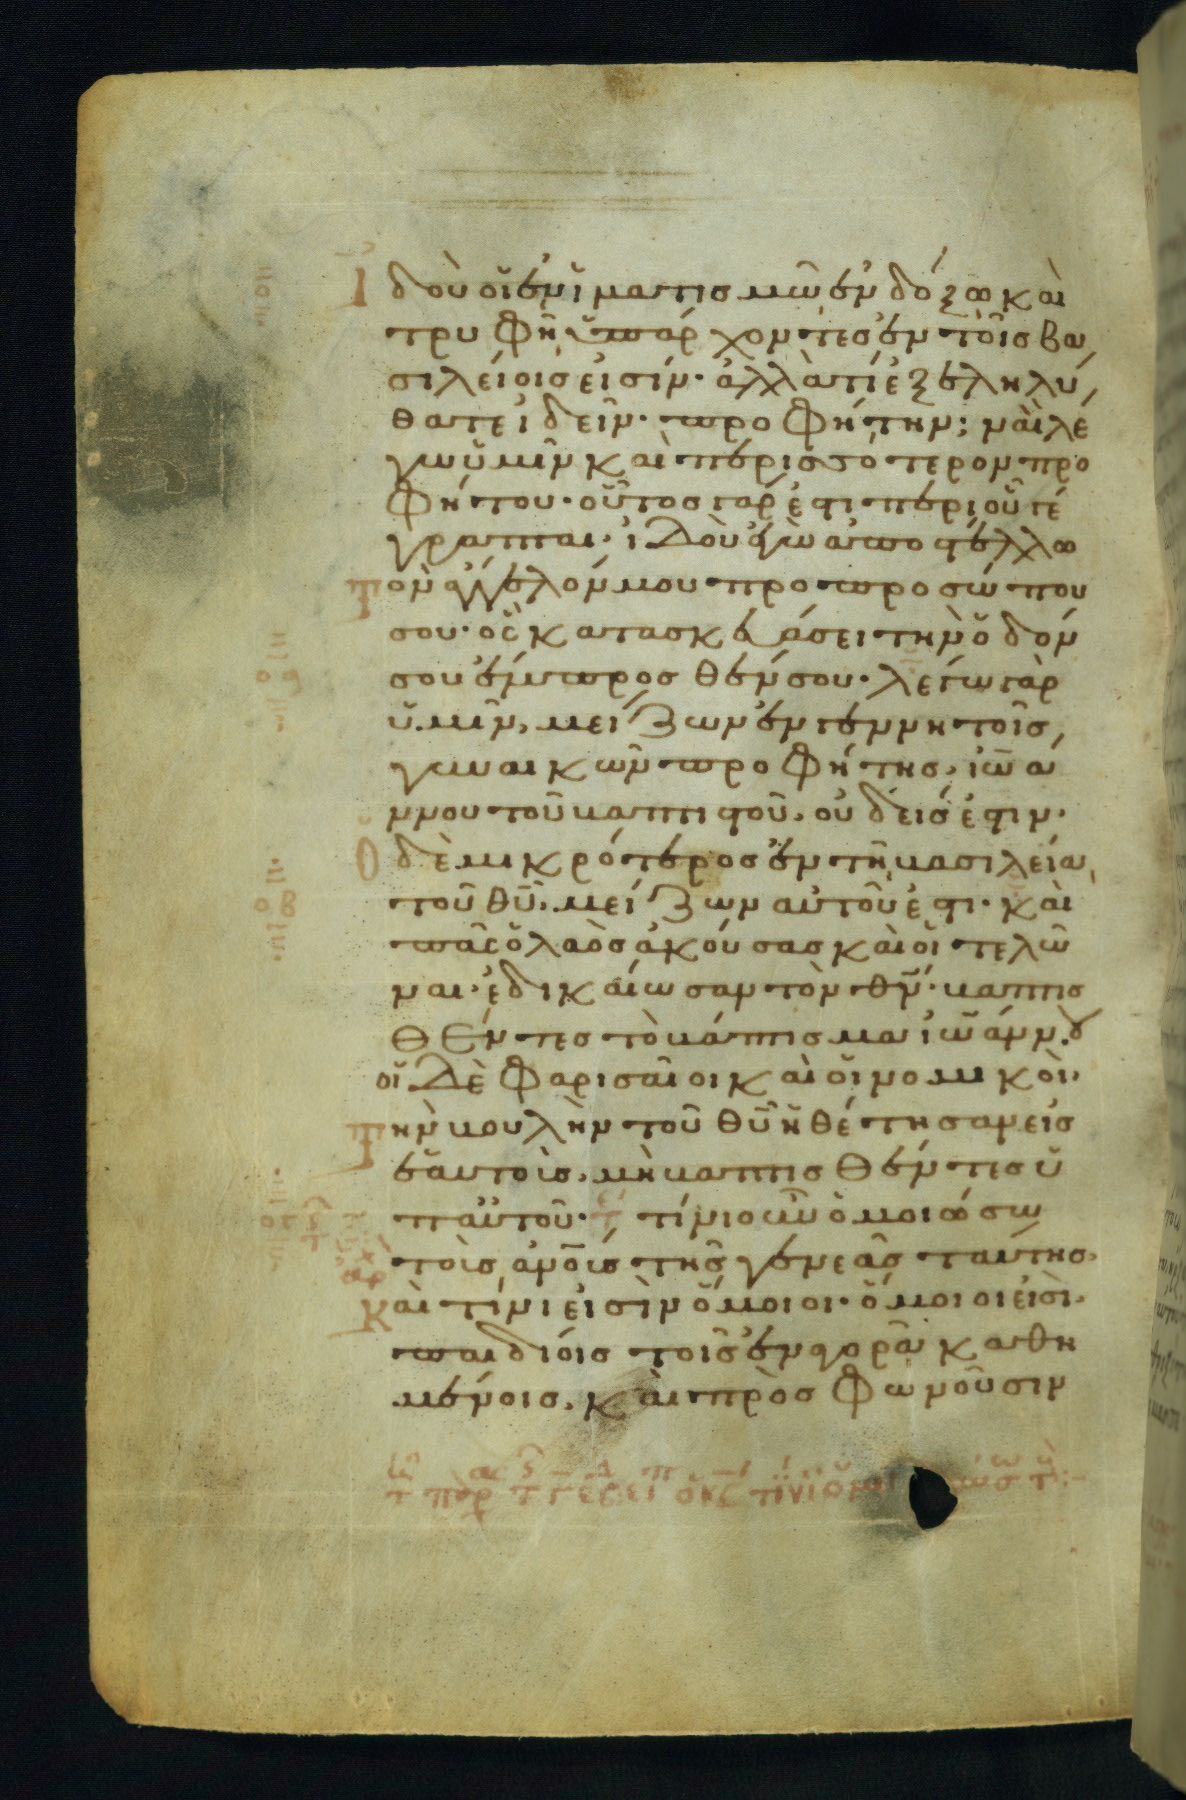 Ἰδοὺ οἱ ἐν ἱματισμῶ ἐνδόξω καὶ
τρυφῇ ὑπάρχοντες ἐν τοῖς βα
σιλείοις εἰσίν· ἀλλὰ τί ἐξεληλύ
θατε ἰδεῖν· προφήτην; ναὶ λέ
γω ὑμῖν καὶ περισσότερον προ
φήτου· οὗτος γάρ ἐστι περὶ οὗ γέ
γραπται· ἰδοὺ ἐγὼ ἀποστέλλω
τὸν ἄγγελόν μου πρὸ προσώπου
σου· ὃς κατασκευάσει τὴν ὁδόν
σου ἔμπροσθέν σου· λέγω γὰρ
ὑμῖν, μείζων ἐν γεννητοῖς
γυναικῶν προφήτης, ἰωᾶ
ννου τοῦ βαπτιστοῦ, οὐδείς ἐστιν·
Ὁ δὲ μικρότερος ἐν τῇ βασιλείᾳ
τοῦ θῦ, μείζων αὐτοῦ ἐστι· καὶ
πᾶς ὁ λαὸς ἀκούσας καὶ οἱ τελῶ
ναι· ἐδικαίωσαν τὸν θν· βαπτισ
θέντες τὸ βάπτισμα ἰωάννου
οἱ δὲ φαρισαῖοι καὶ οἱ νομικοὶ,
τὴν βουλὴν τοῦ θῦ ἠθέτησαν εἰς
ἑαυτοὺς, μὴ βαπτισθέντες ὑ
π αὐτοῦ· τίνι οὖν ὁμοιώσω
τοὺς ἀνους τῆς γενεᾶς ταύτης,
Καὶ τίνι εἰσὶν ὅμοιοι· ὅμοιοί εἰσι,
παιδίοις τοῖς ἐν ἀγορᾷ καθη
μένοις, καὶ προσφωνοῦσιν